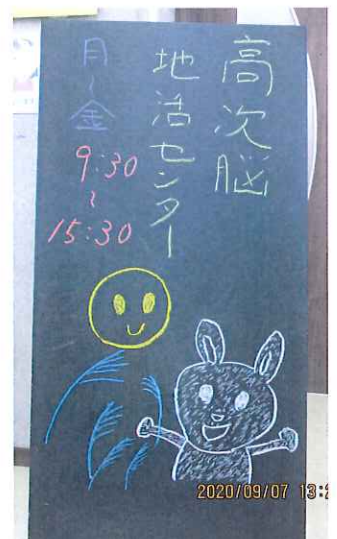 高次脳
地活センター
月~金
9:30
~
15:30
2020/09/07 13:2